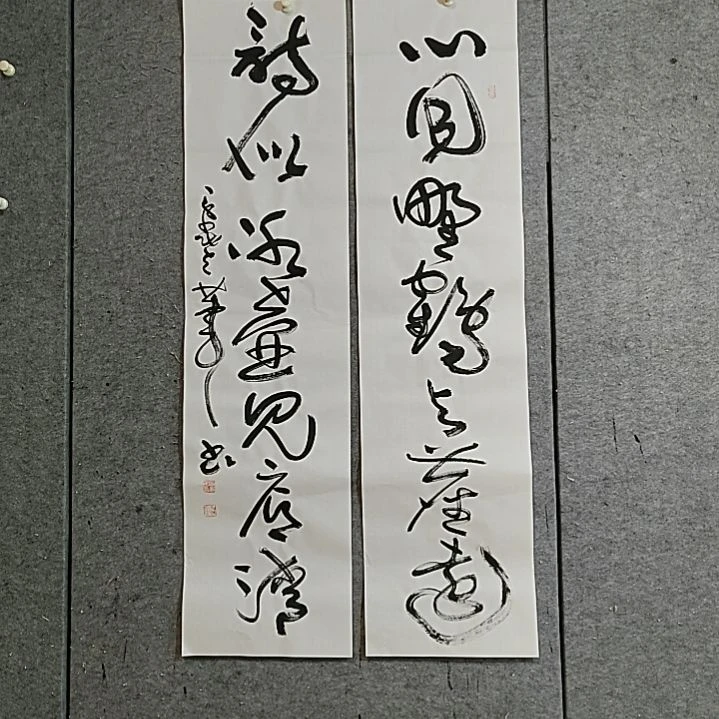 心同野鶴与塵遠
詩似冰壺見底清
書